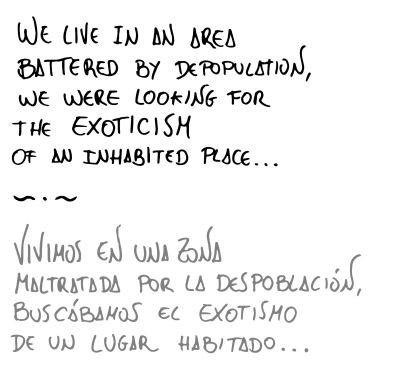 WE LIVE IN AN AREA
BATTERED BY DEPOPULATION,
WE WERE LOOKING FOR
THE EXOTICISM
OF AN INHABITED PLACE...
~.~
VIVIMOS EN UNA ZONA
MALTRATADA POR LA DESPOBLACIÓN,
BUSCÁBAMOS EL EXOTISMO
DE UN LUGAR HABITADO...